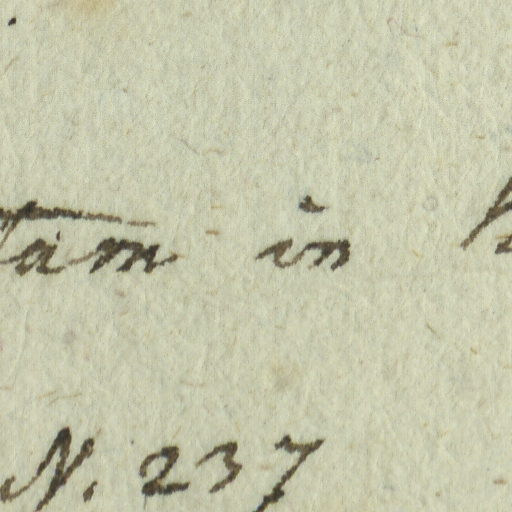 tam in
N. 237